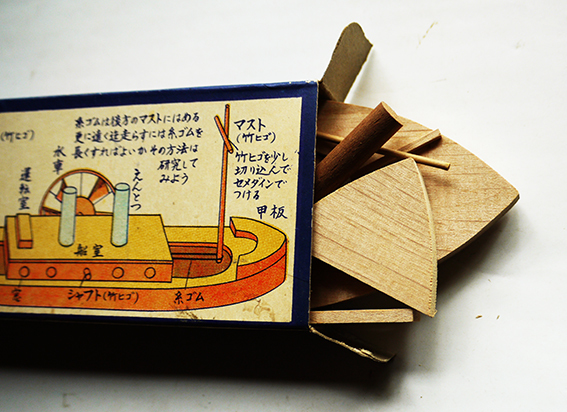 (竹ヒゴ)
糸ゴムは後方のマストにはめる
更に遠く迄走らすには糸ゴムを
長くすればよいがその方法は
研究して
みよう
水車
運転室
えんとつ
マスト
(竹ヒゴ)
竹ヒゴを少し
切り込んで
セメダインで
つける
甲板
船室
窓
シャフト(竹ヒゴ)
糸ゴム